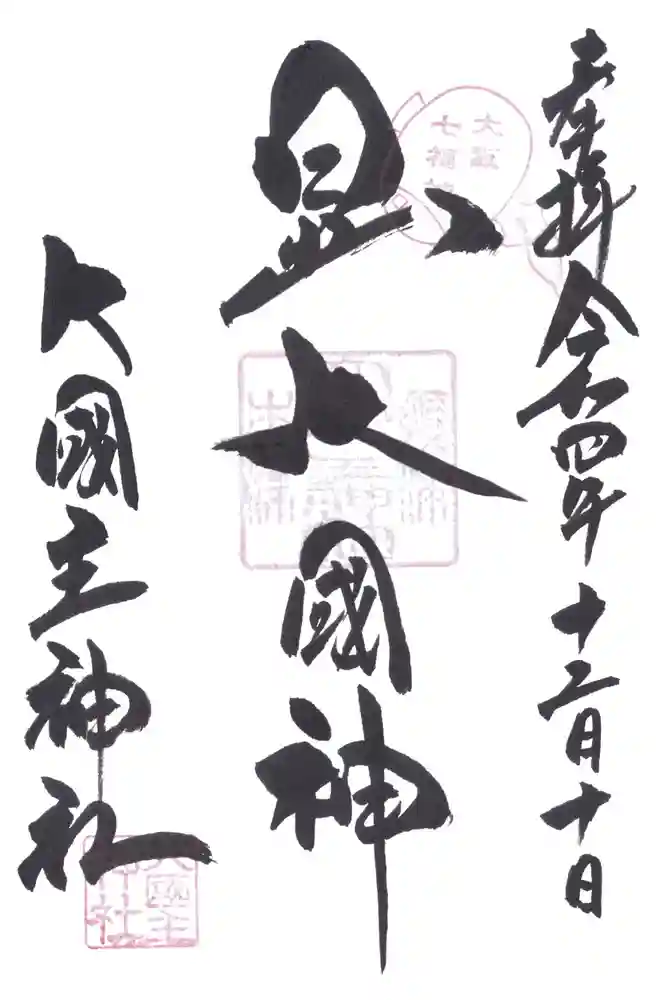 奉拝 令和四年十二月十日
大阪
七福神
大國神
大國主神社
大國主
神社